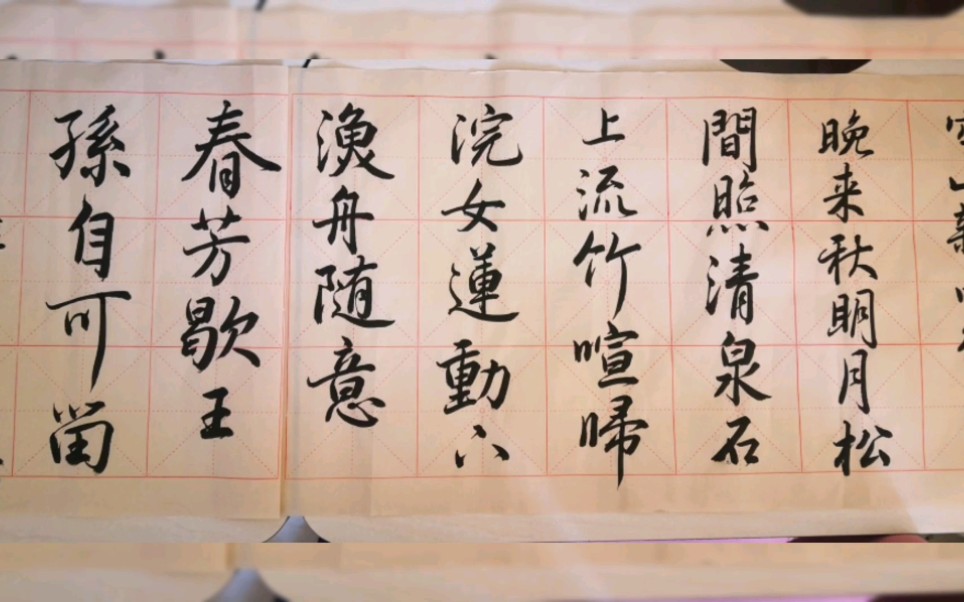 晚来秋明月松
間照清泉石
上流竹喧歸
浣女蓮動下
漁舟随意
春芳歇王
孫自可留